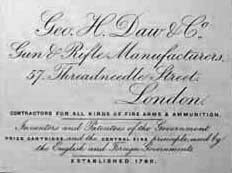 Geo. H. Daw & Co.
Gun & Rifle Manufacturers,
57, Threadneedle Street,
London.
CONTRACTORS FOR ALL KINDS OF FIRE ARMS & AMMUNITION.
Inventors and Patentees of the Government
PRIZE CARTRIDGE AND THE CENTRAL FIRE principle, used by
the English and Foreign Governments
ESTABLISHED